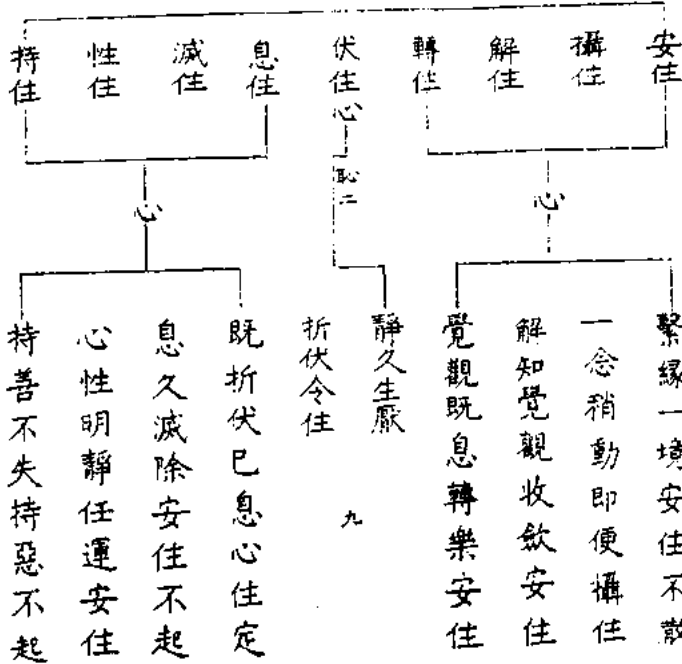 安住
攝住
解住
轉住
伏住心
息住
滅住
性住
持住
心
恥二
心
繫緣一境安住不散
一念稍動即便攝住
解知覺觀收歛安住
覺觀既息轉樂安住
靜久生厭
折伏令住
九
既折伏已息心住定
息久滅除安住不起
心性明靜任運安住
持善不失持惡不起